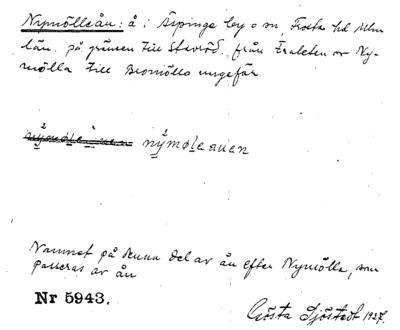 Nymölleån: å i Äspinge by o sn, Frosta hd Mlm
län. på gränsen till Starröd. från Fralten or Ny-
mölla till Bromölla ungefär
nymøleauen
Namnet på denna del av ån efter Nymölla, som
passeras av ån
Nr 5943.
Gösta Sjöstedt 1937.